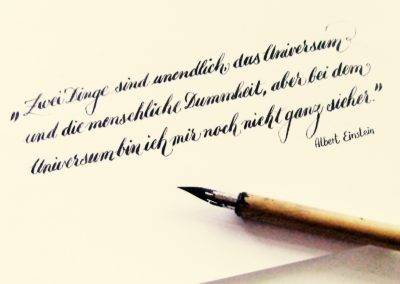 „Zwei Dinge sind unendlich, das Universum
und die menschliche Dummheit, aber bei dem
Universum bin ich mir noch nicht ganz sicher."
Albert Einstein